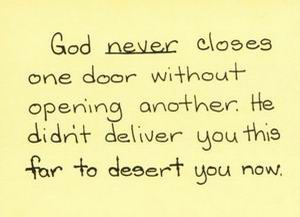 God never closes
one door without
opening another. He
didn't deliver you this
far to desert you now.